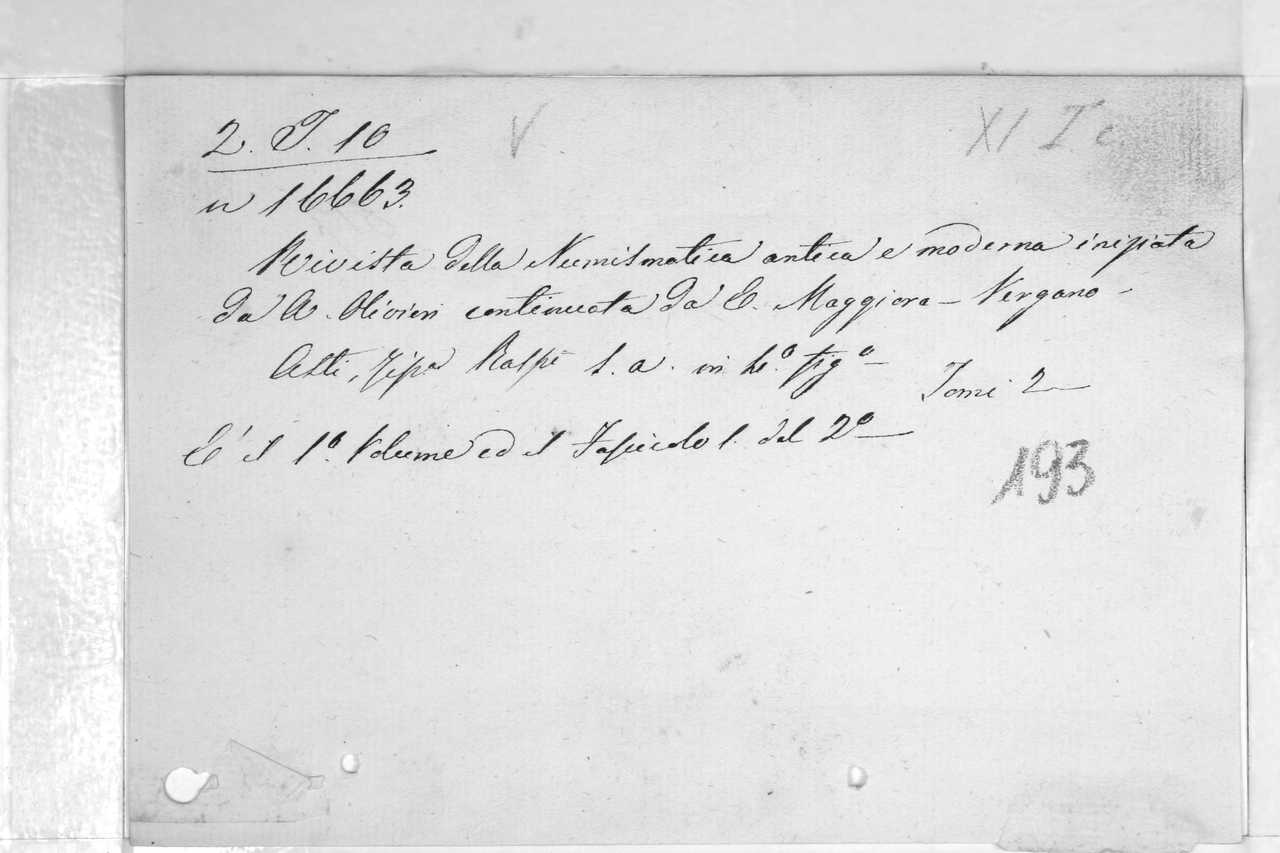 2. T. 10 V XI I c.
n 16663.
Rivista della Numismatica antica e moderna iniziata
da A. Olivieri continuata da E. Maggiora-Vergano-
Asti, Tipa Raspi s. a. in 4.º figº
Tomi 2
E' il 1º. Volume ed il Fascicolo 1. del 2º
193